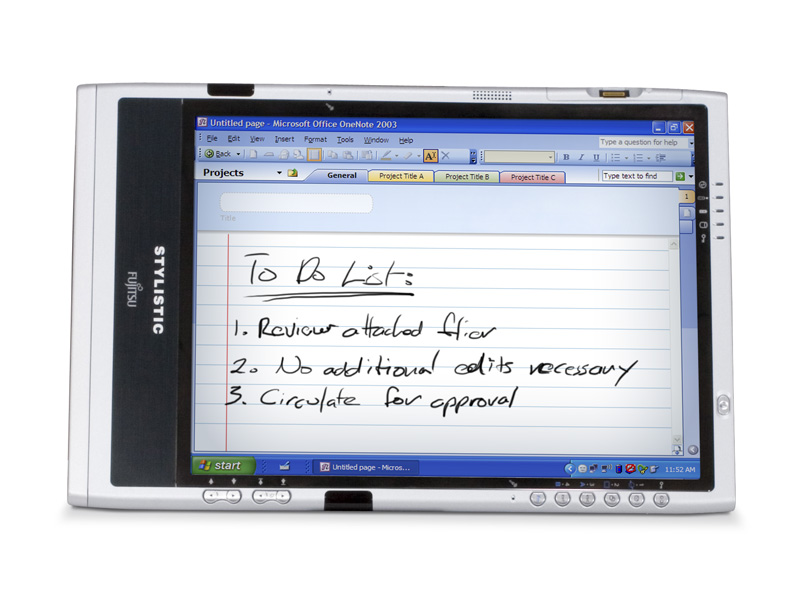 Untitled page - Microsoft Office OneNote 2003
File Edit View Insert Format Tools Window Help
Type a question for help
Back
B I U
Projects General Project Title A Project Title B Project Title C Type text to find
1
Title
To Do List:
1. Review attached flier
2. No additional edits necessary
3. Circulate for approval
STYLISTIC
FUJITSU
start Untitled page - Micros... 11:52 AM